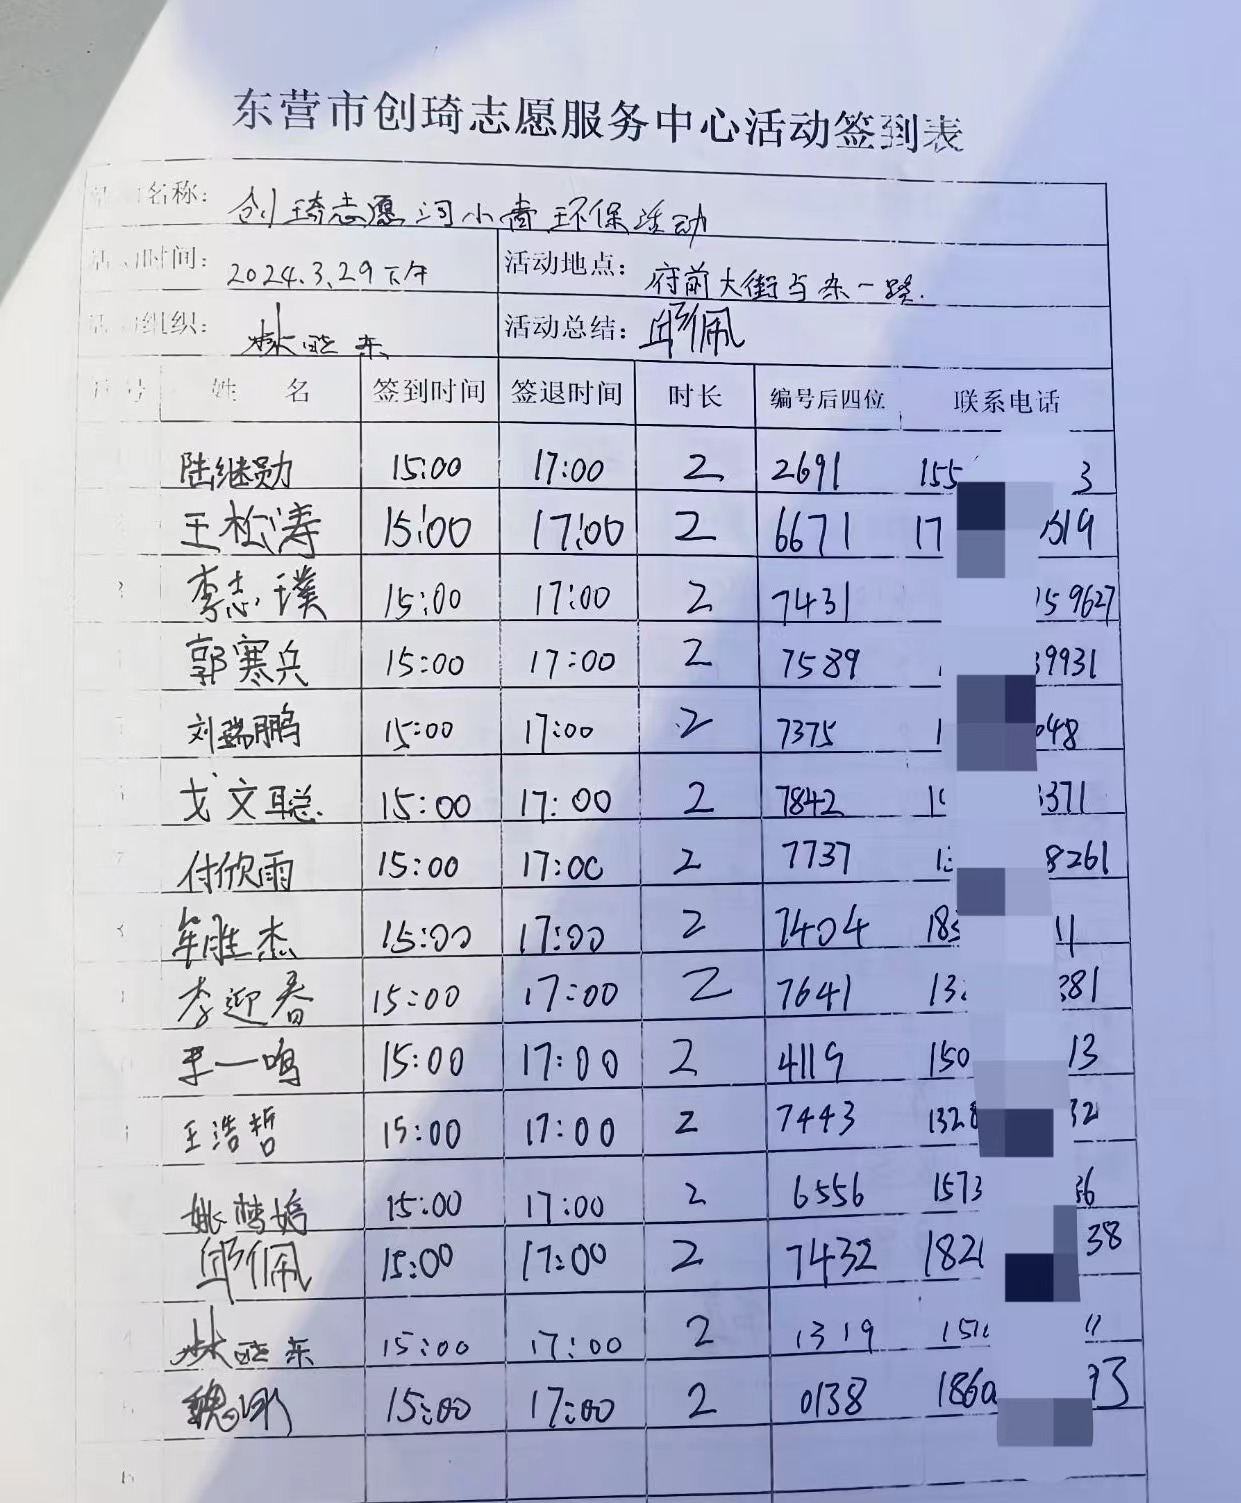 东营市创琦志愿服务中心活动签到表
名称： 创琦志愿河小青环保活动
活动时间： 2024.3.29下午 活动地点： 府前大街与东一路.
活动组织： 林晓东 活动总结： 邱佩
序号 姓 名 签到时间 签退时间 时长 编号后四位 联系电话
陆继勋 15:00 17:00 2 2691 155 3
王松涛 15:00 17:00 2 6671 17 319
3 李志璞 15:00 17:00 2 7431 159627
郭寒兵 15:00 17:00 2 7589 39931
刘瑞鹏 15:00 17:00 2 7375 1 048
戈文聪 15:00 17:00 2 7842 1 3371
7 付欣雨 15:00 17:00 2 7737 1 8261
牟胜杰 15:00 17:00 2 7404 183 11
李迎春 15:00 17:00 2 7641 13 381
李一鸣 15:00 17:00 2 4119 150 13
王浩哲 15:00 17:00 2 7443 1328 32
姚 15:00 17:00 2 6556 1573 36
邱佩 15:00 17:00 2 7432 182 38
林晓东 15:00 17:00 2 1319 151 11
魏 15:00 17:00 2 0138 1860 93